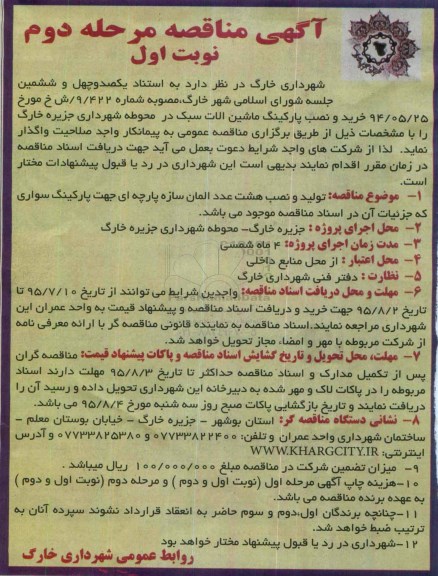 آگهی مناقصه مرحله دوم
نوبت اول
شهرداری خارگ در نظر دارد به استناد یکصدوچهل و ششمین
جلسه شورای اسلامی شهر خارگ،مصوبه شماره ۹/۴۲۲/ش خ مورخ
۹۴/۰۵/۲۵ خرید و نصب پارکینگ ماشین الات سبک در محوطه شهرداری جزیره خارگ
را با مشخصات ذیل از طریق برگزاری مناقصه عمومی به پیمانکار واجد صلاحیت واگذار
نماید. لذا از شرکت های واجد شرایط دعوت بعمل می آید جهت دریافت اسناد مناقصه
در زمان مقرر اقدام نمایند بدیهی است این شهرداری در رد یا قبول پیشنهادات مختار
است.
۱- موضوع مناقصه: تولید و نصب هشت عدد المان سازه پارچه ای جهت پارکینگ سواری
که جزئیات آن در اسناد مناقصه موجود می باشد.
۲- محل اجرای پروژه : جزیره خارگ- محوطه شهرداری جزیره خارگ
۳- مدت زمان اجرای پروژه: ۴ ماه شمسی
۴- محل اعتبار : از محل منابع داخلی
۵- نظارت : دفتر فنی شهرداری خارگ
۶- مهلت و محل دریافت اسناد مناقصه: واجدین شرایط می توانند از تاریخ ۹۵/۷/۱۰ تا
تاریخ ۹۵/۸/۲ جهت خرید و دریافت اسناد مناقصه و پیشنهاد قیمت به واحد عمران این
شهرداری مراجعه نمایند.اسناد مناقصه به نماینده قانونی مناقصه گر با ارائه معرفی نامه
از شرکت مربوطه با مهر و امضاء مجاز تحویل خواهد شد.
۷- مهلت، محل تحویل و تاریخ گشایش اسناد مناقصه و پاکات پیشنهاد قیمت: مناقصه گران
پس از تکمیل مدارک و اسناد مناقصه حداکثر تا تاریخ ۹۵/۸/۳ مهلت دارند اسناد
مربوطه را در پاکات لاک و مهر شده به دبیرخانه این شهرداری تحویل داده و رسید آن را
دریافت نمایند و تاریخ بازگشایی پاکات صبح روز سه شنبه مورخ ۹۵/۸/۴ می باشد.
۸- نشانی دستگاه مناقصه گر: استان بوشهر - جزیره خارگ - خیابان بوستان معلم -
ساختمان شهرداری واحد عمران و تلفن: ۰۷۷۳۳۸۲۲۴۰۰ و ۰۷۷۳۳۸۲۵۳۸۰ و آدرس
اینترنتی: WWW.KHARGCITY.IR
۹- میزان تضمین شرکت در مناقصه مبلغ ۱۰۰/۰۰۰/۰۰۰ ریال میباشد .
۱۰-هزینه چاپ آگهی مرحله اول (نوبت اول و دوم ) و مرحله دوم (نوبت اول و دوم )
به عهده برنده مناقصه می باشد.
۱۱-چنانچه برندگان اول،دوم و سوم حاضر به انعقاد قرارداد نشوند سپرده آنان به
ترتیب ضبط خواهد شد.
۱۲-شهرداری در رد یا قبول پیشنهاد مختار خواهد بود
روابط عمومی شهرداری خارگ